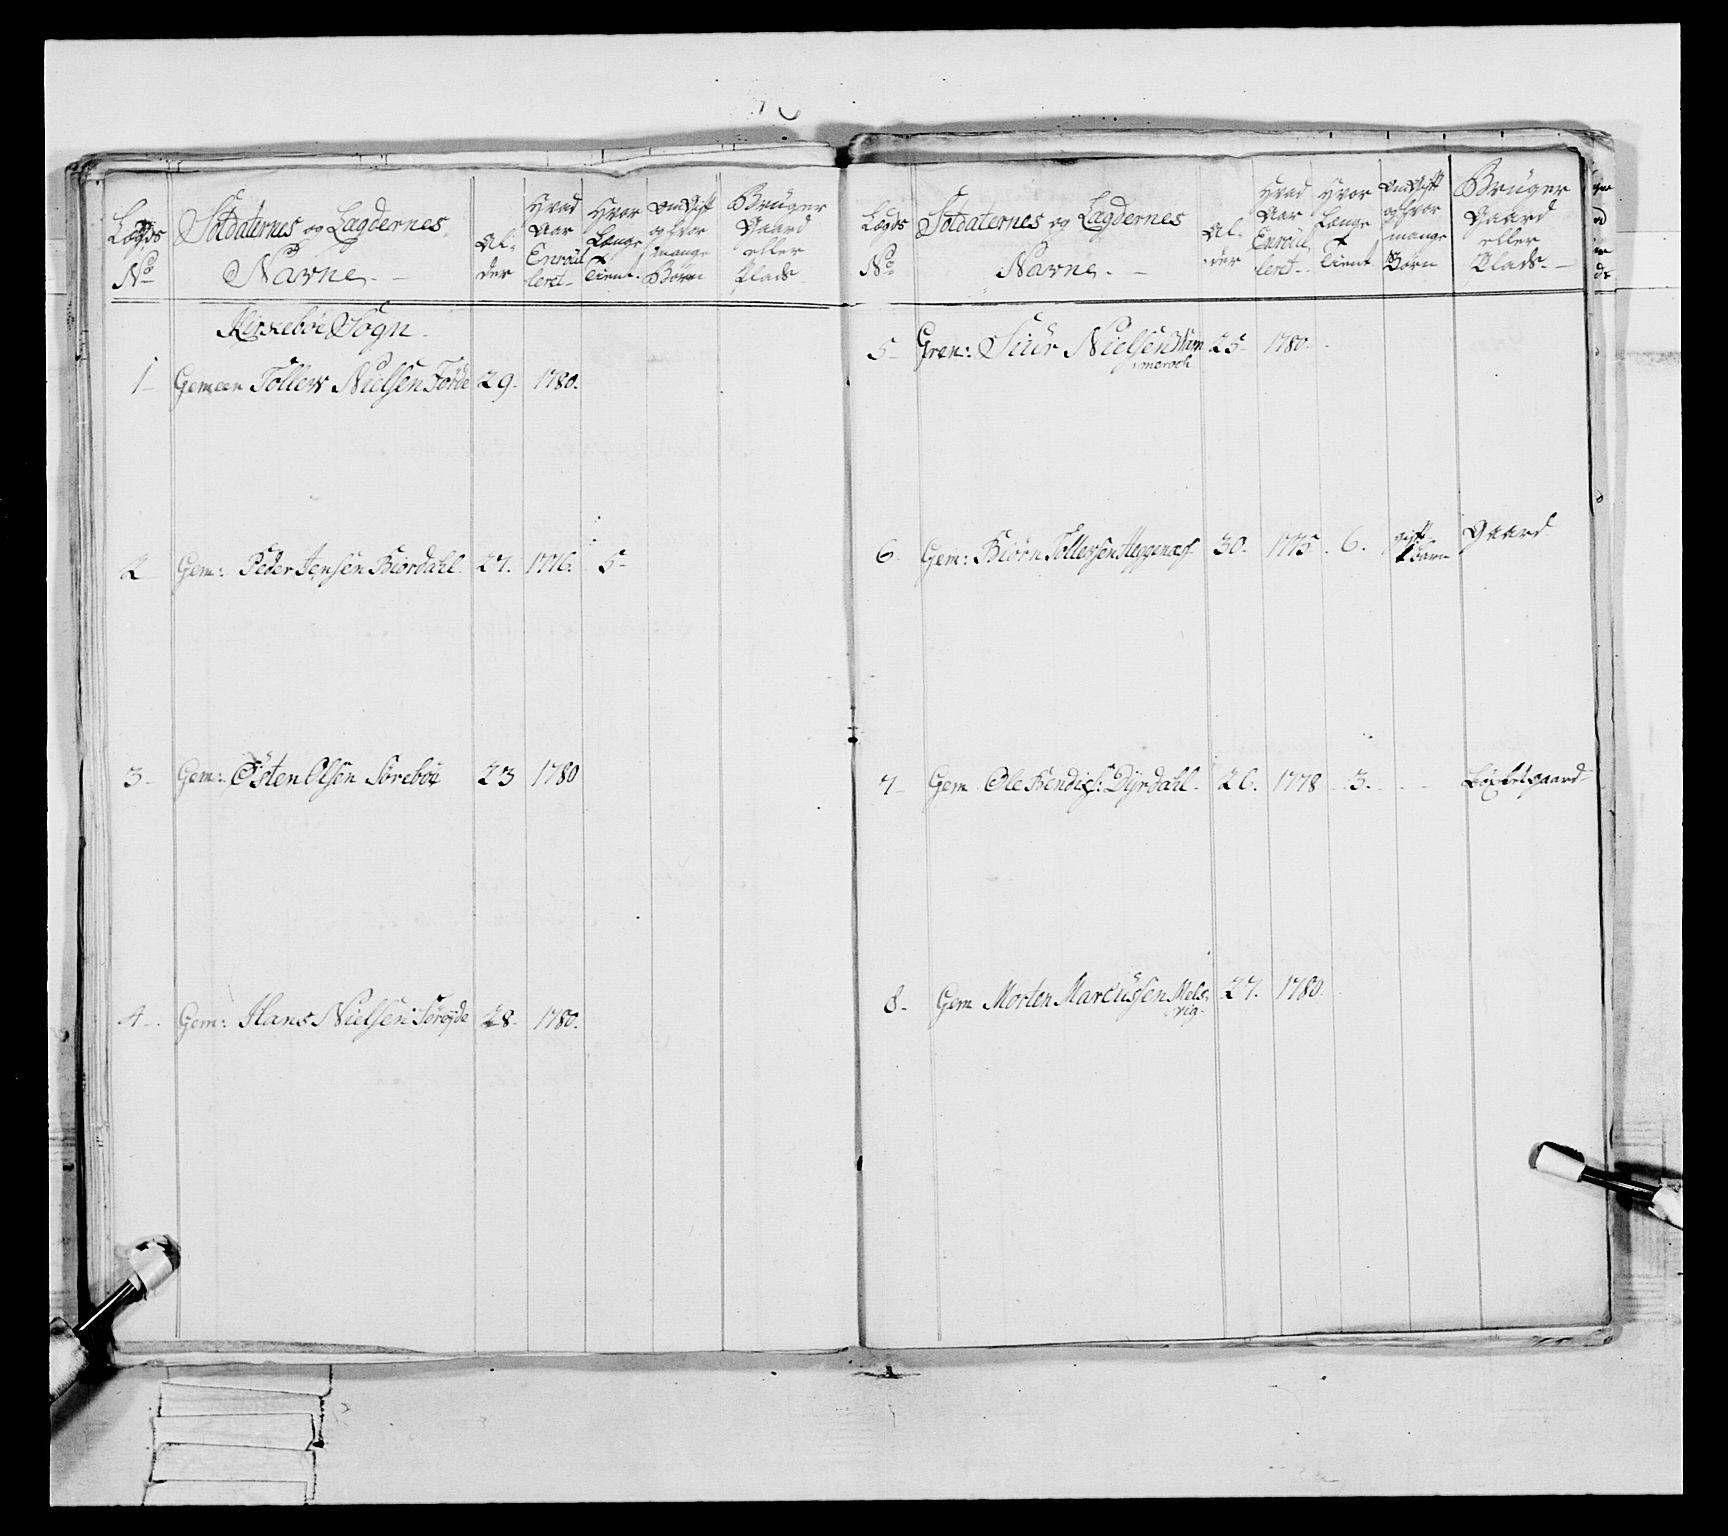 Lægds No
Soldaternes og Lagdernes Navne.
Alder
Hvad Aar Enroulleret
Hvor Længe tient.
Om Gift og hvor mange Børn
Bruger Gaard eller Plads
Kirkebøe Sogn.
1 Gemeen Tollew Nielsen Førde 29. 1780.
2 Gem: Peder Jensen Biordahl 27. 1776. 5
3 Gem: Østen Olsen Sørebøe 23 1780
4 Gem: Hans Nielsen Sørøyde 28. 1780.
Lægds No
Soldaternes og Lagdernes Navne.
Alder
Hvad Aar Enroulleret
Hvor Længe tient.
Om Gift og hvor mange Børn
Bruger Gaard eller Plads.
5 Gren: Siur Nielsen 25 1780.
6. Gem: Biørn Tollefsen 30. 1775. 6. gift 1 Barn Gaard
7 Gem Ole Bendix: Dyrdahl. 26. 1778 3.
8. Gem Morten Marcussen Mels-
vig. 27. 1780.